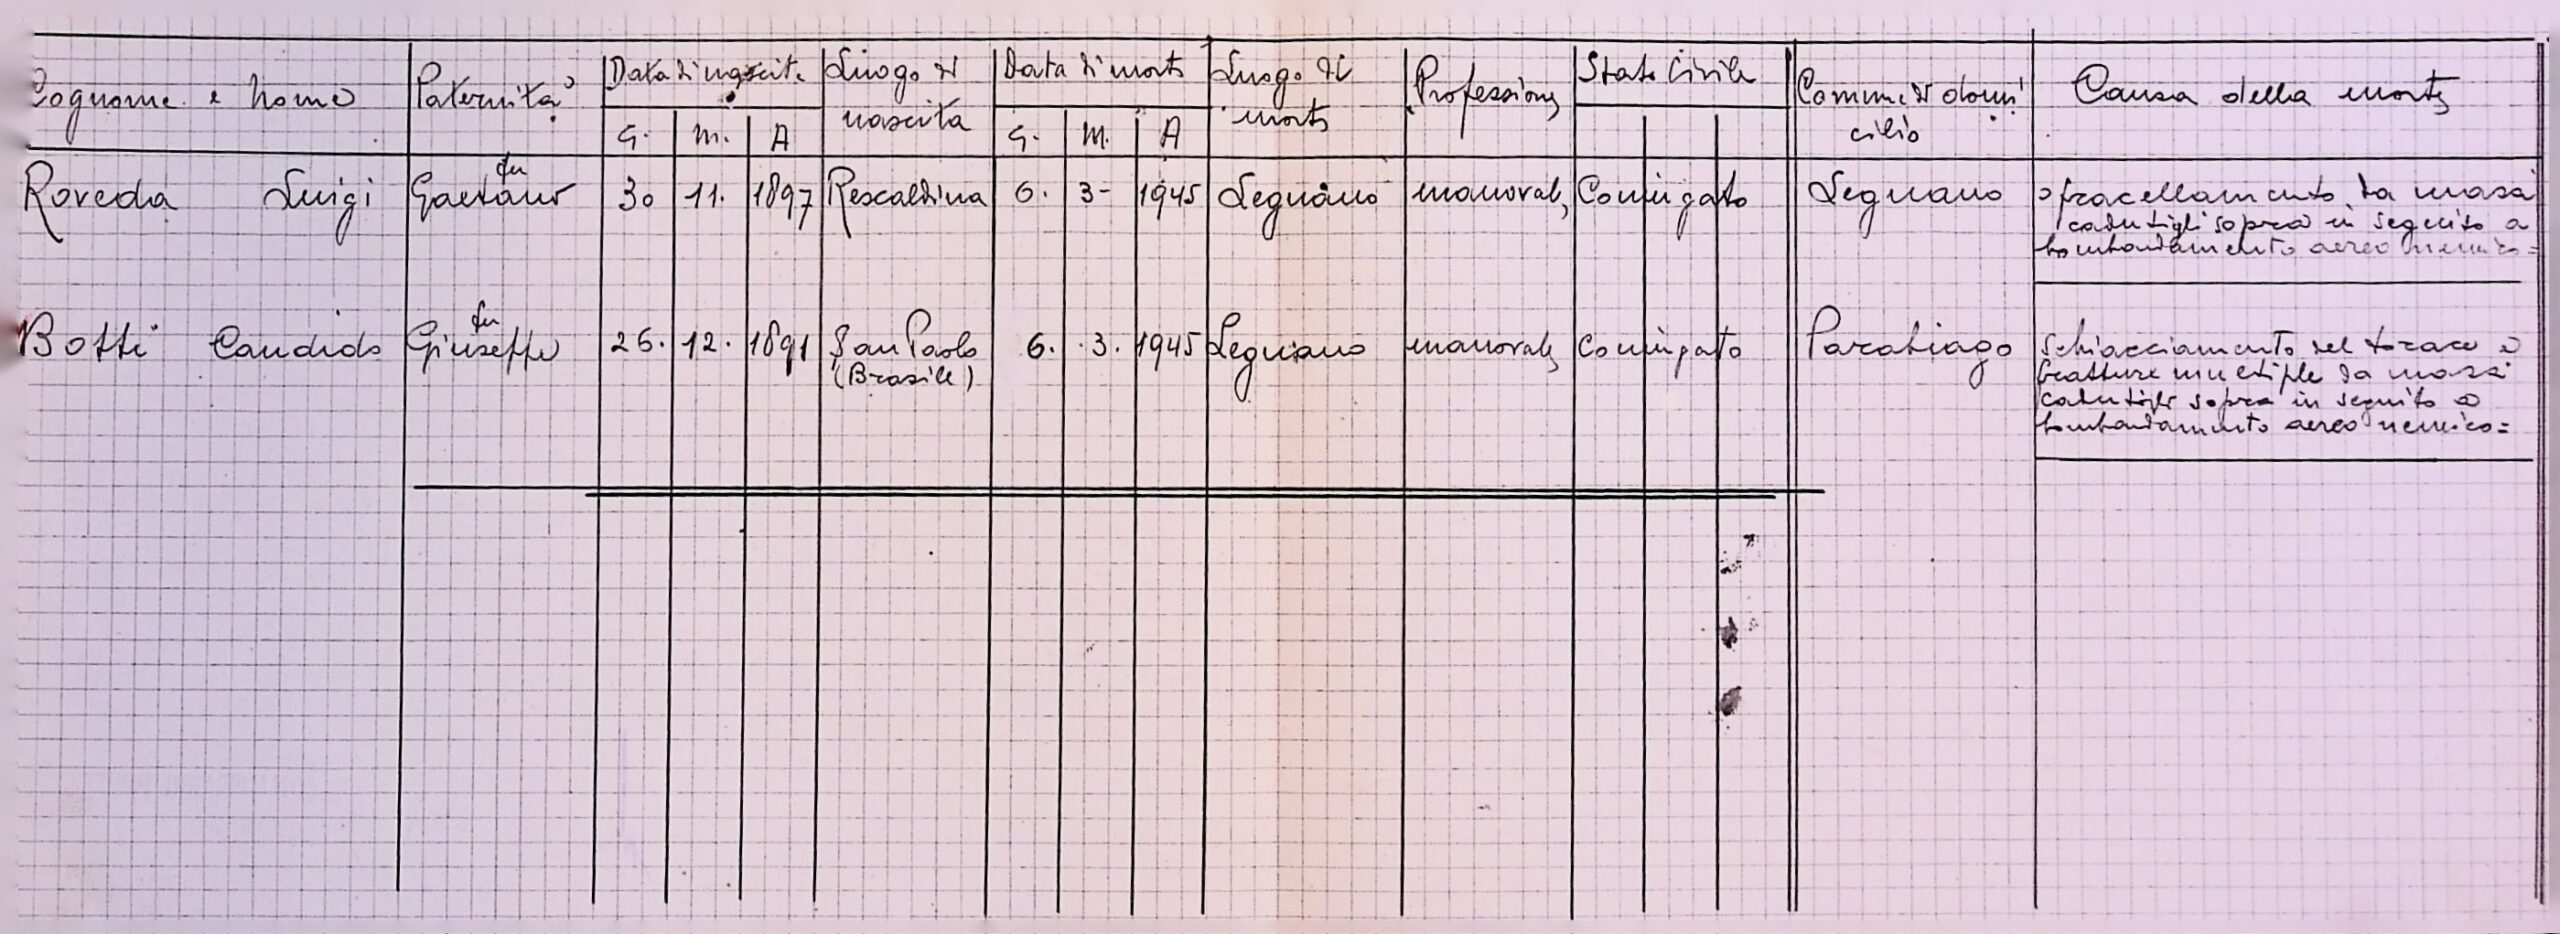 Cognome e Nome Paternità Data di nascita Luogo di nascita Data di morte Luogo di morte Professione Stato Civile Comune di domicilio Causa della morte
G. M. A G. M. A
Roveda Luigi fu Gaetano 30 11. 1897 Rescaldina 6. 3- 1945 Legnano manovale Coniugato Legnano sfracellamento da massi
cadutigli sopra in seguito a
bombardamento aereo nemico=
Botti Candido fu Giuseppe 26. 12. 1891 San Paolo (Brasile) 6. 3. 1945 Legnano manovale Coniugato Parabiago Schiacciamento del torace e
fratture multiple da massi
cadutigli sopra in seguito a
bombardamento aereo nemico=